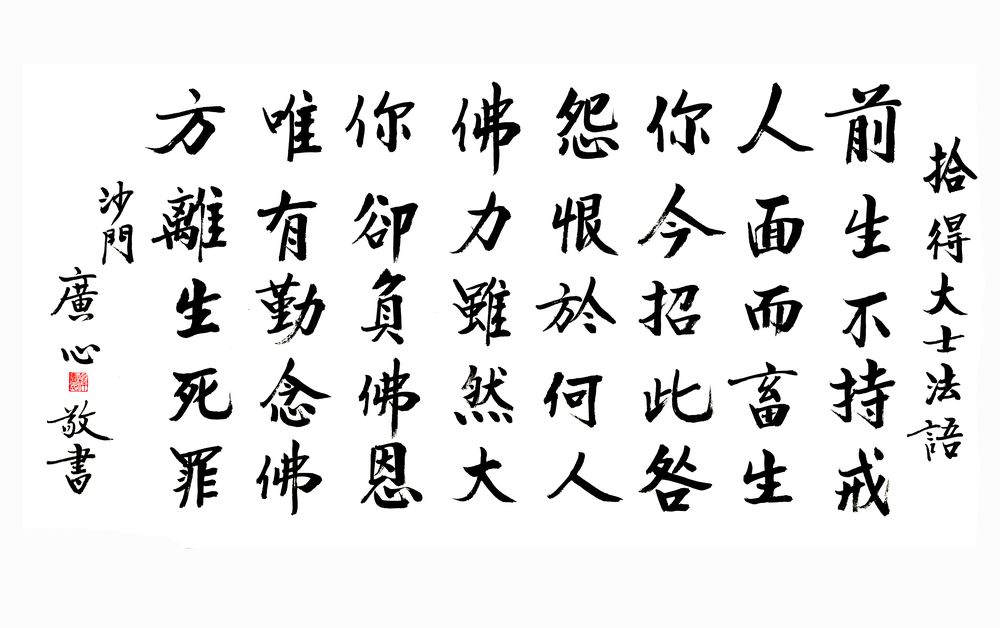 拾得大士法語
前生不持戒
人面而畜生
你今招此咎
怨恨於何人
佛力雖然大
你卻負佛恩
唯有勤念佛
方離生死罪
沙門
廣心敬書